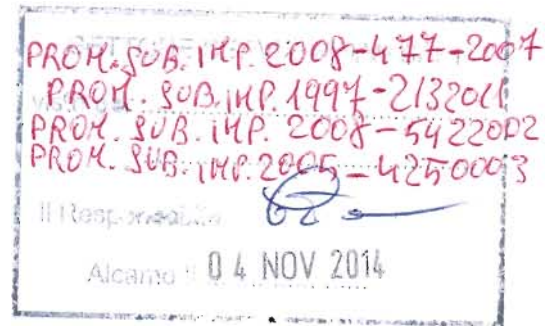 PROM. SUB. IMP. 2008-477-2007
PROM. SUB. IMP. 1997-2132011
PROM. SUB. IMP. 2008-5422002
PROM. SUB. IMP. 2005-4250003
Il Responsabile
Alcamo lì 04 NOV 2014